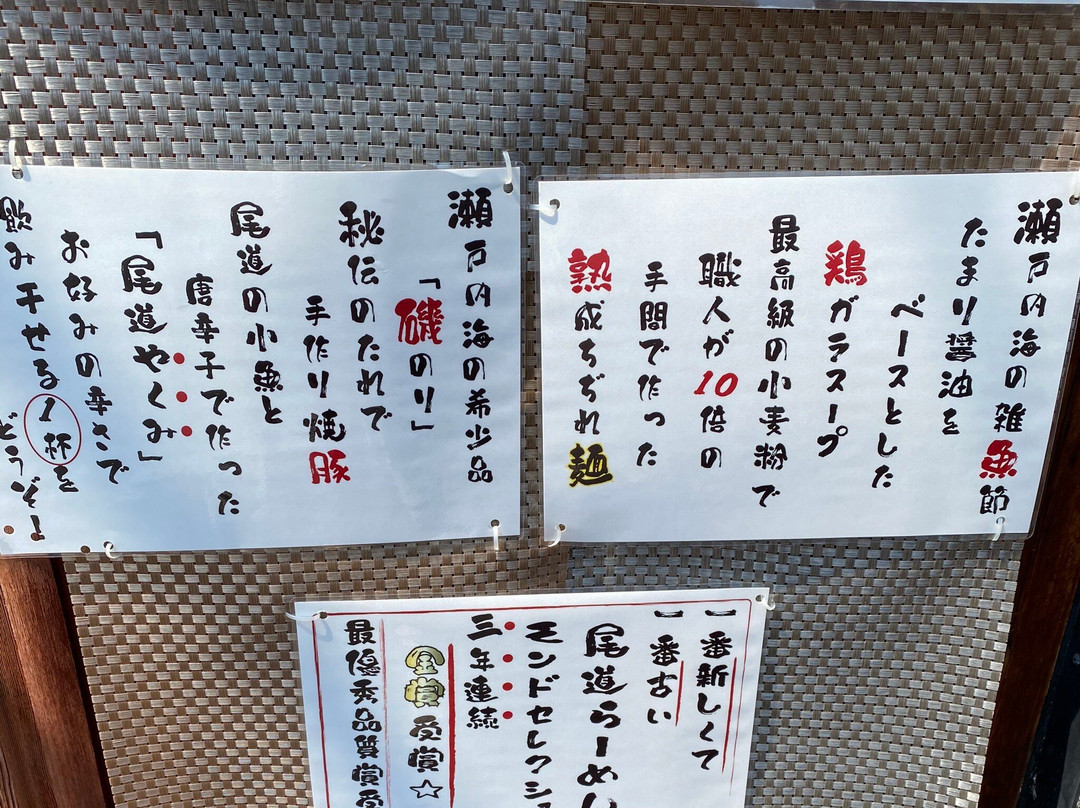 瀬戸内海の雑魚節
たまり醤油を
ベースとした
鶏ガラスープ
最高級の小麦粉で
職人が10倍の
手間で作った
熟成ちぢれ麺
瀬戸内海の希少品
「磯のり」
秘伝のたれで
手作り焼豚
尾道の小魚と
唐辛子で作った
「尾道やくみ」
お好みの辛さで
飲み干せる1杯を
どうぞ!
一番新しくて
一番古い
尾道らーめん
モンドセレクショ
三年連続
金賞受賞☆
最優秀品質賞受